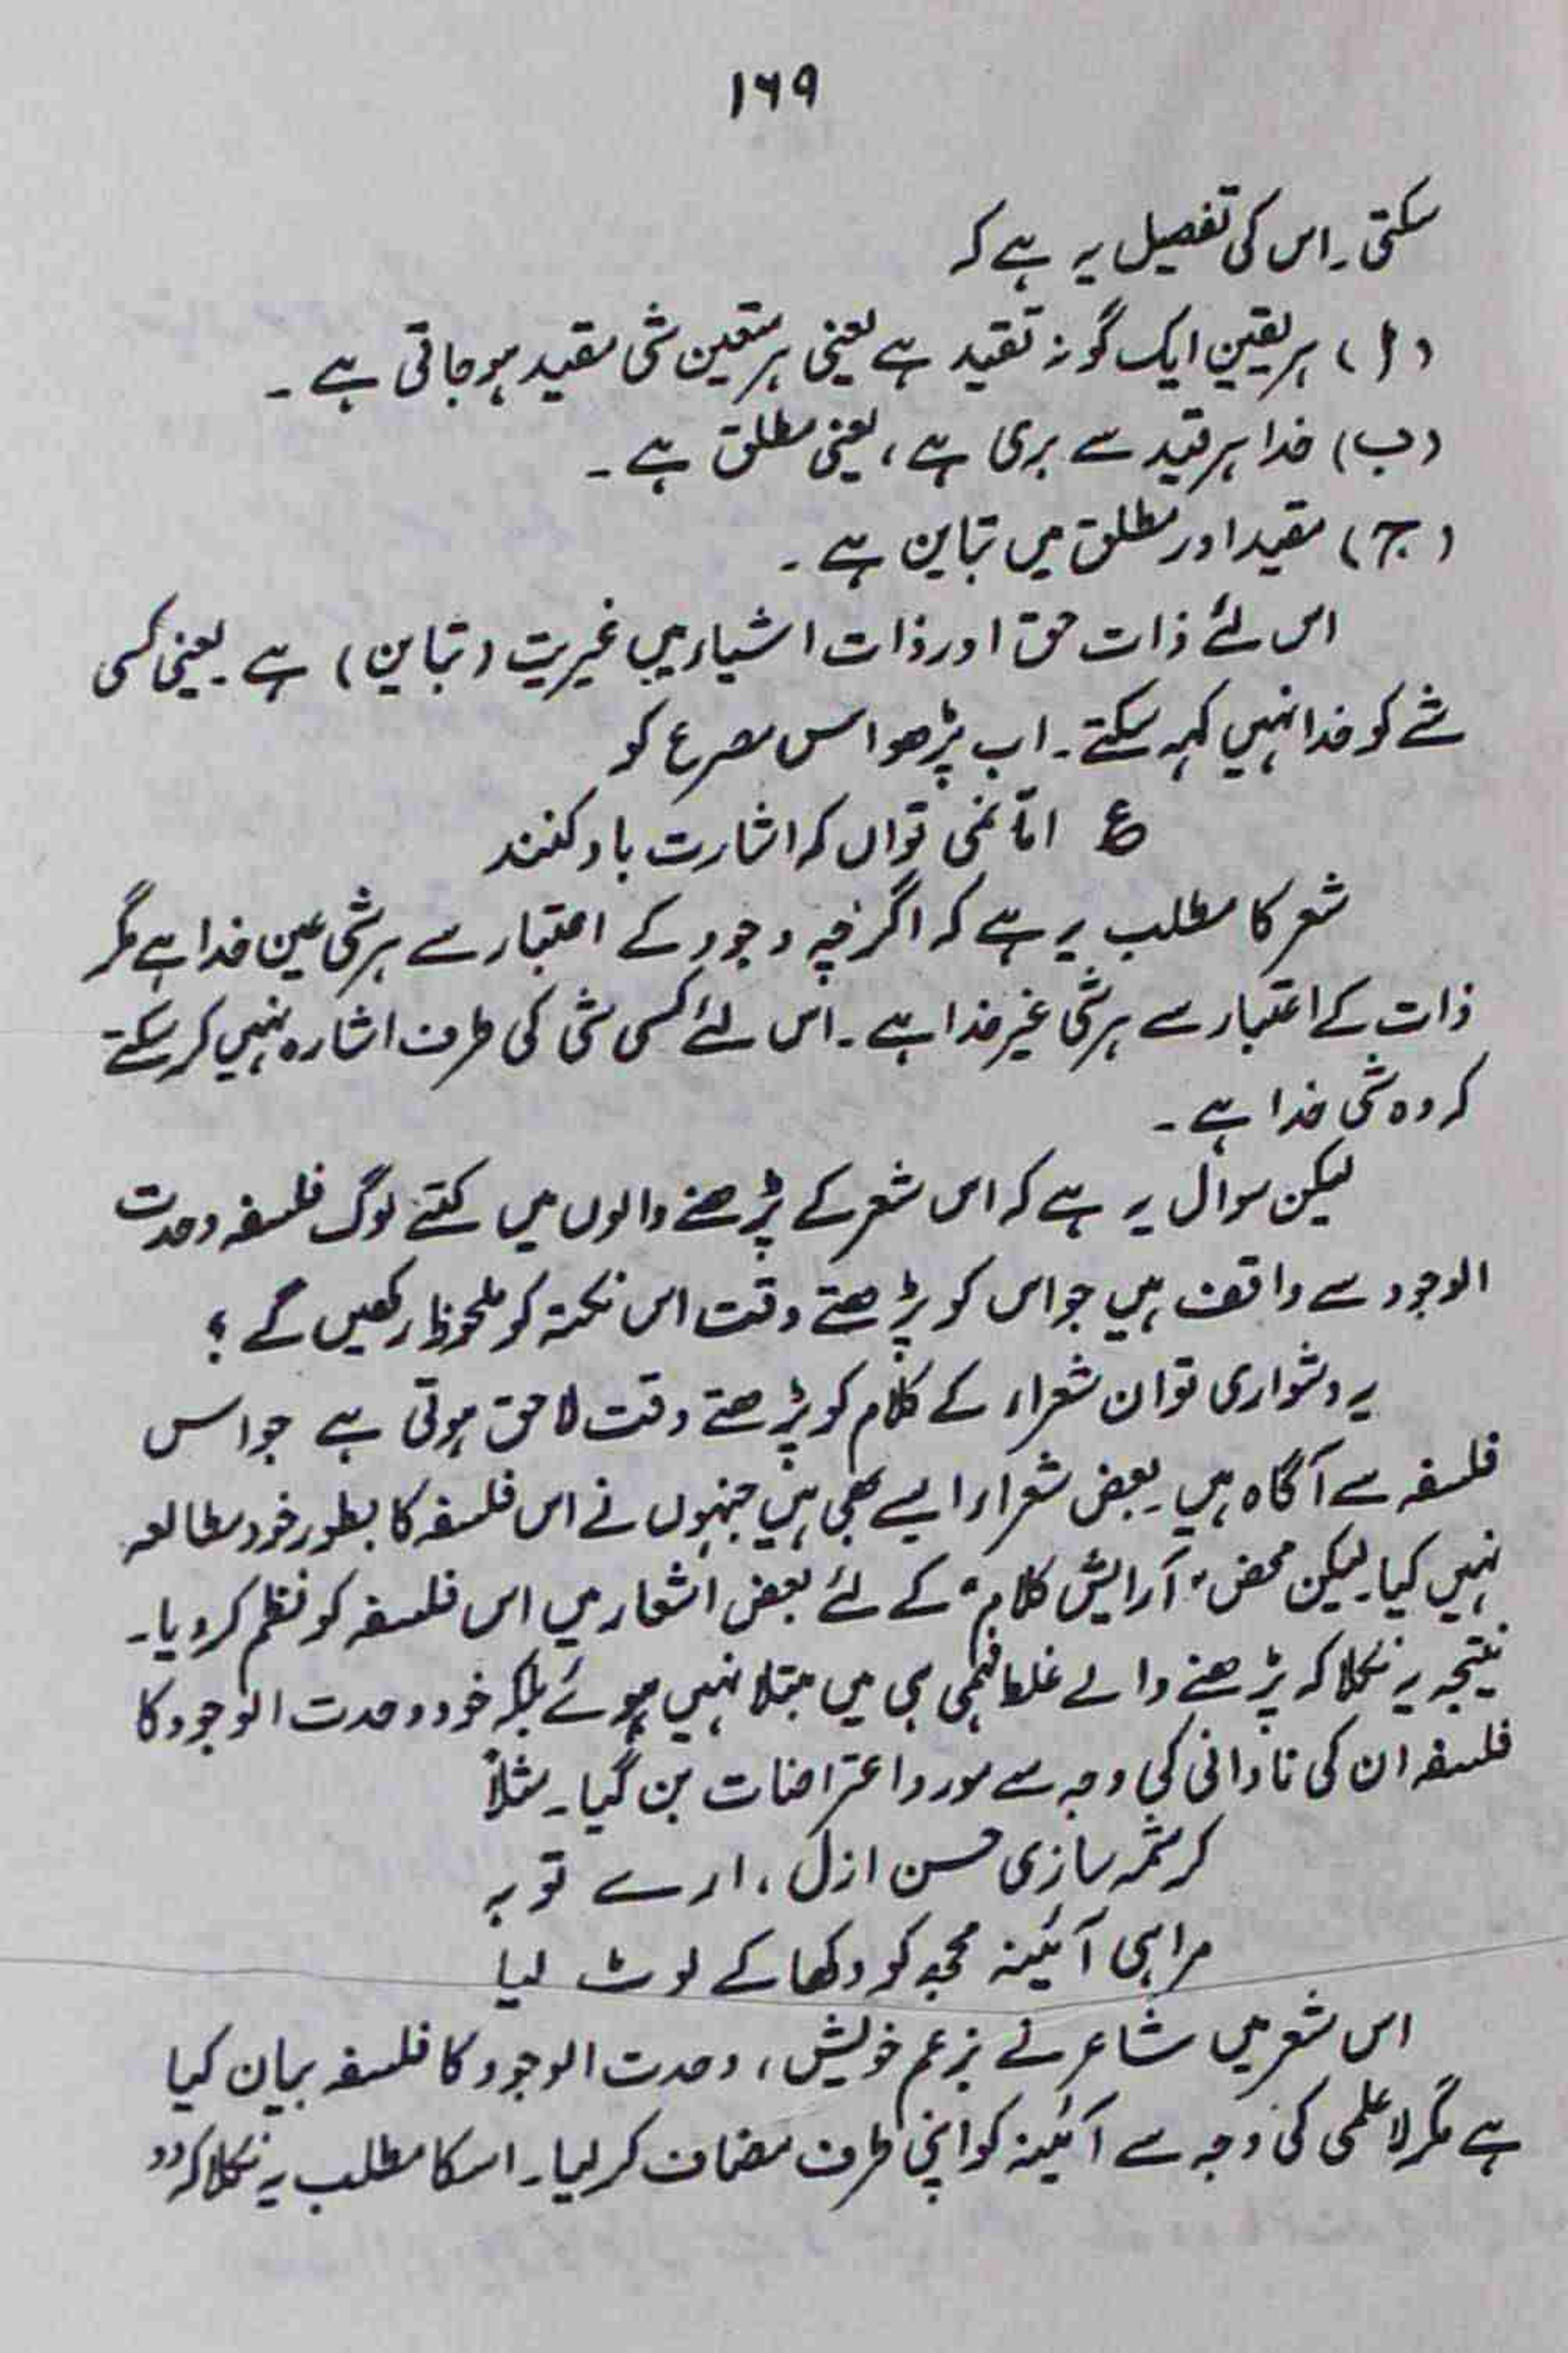 ۱۶۹
سکتی۔ اس کی تفصیل یہ ہے کہ
(ا) ہر یقین ایک گونہ تقید ہے یعنی ہر متعین شی مقید ہو جاتی ہے ۔
(ب) خدا ہر قید سے بری ہے، یعنی مطلق ہے ۔
(ج) مقید اور مطلق میں تباین ہے ۔
اس لئے ذات حق اور ذات اشیاء میں غیریت (تباین) ہے یعنی کسی
شے کو خدا نہیں کہہ سکتے۔ اب پڑھو اس مصرع کو
ع اما نمی تواں کہ اشارت باو کنند
شعر کا مطلب یہ ہے کہ اگرچہ وجود کے اعتبار سے ہر شی عین خدا ہے مگر
ذات کے اعتبار سے ہر شی غیر خدا ہے۔ اس لئے کسی شی کی طرف اشارہ نہیں کر سکتے
کہ وہ شی خدا ہے ۔
لیکن سوال یہ ہے کہ اس شعر کے پڑھنے والوں میں کتنے لوگ فلسفہ وحدت
الوجود سے واقف ہیں جو اس کو پڑھتے وقت اس نکتہ کو ملحوظ رکھیں گے ؟
یہ دشواری تو ان شعراء کے کلام کو پڑھتے وقت لاحق ہوتی ہے جو اس
فلسفہ سے آگاہ ہیں۔ بعض شعراء ایسے بھی ہیں جنہوں نے اس فلسفہ کا بطور خود مطالعہ
نہیں کیا۔ لیکن محض "آرایش کلام" کے لئے بعض اشعار میں اس فلسفہ کو نظم کر دیا۔
نتیجہ یہ نکلا کہ پڑھنے والے غلط فہمی ہی میں مبتلا نہیں ہوئے بلکہ خود وحدت الوجود کا
فلسفہ ان کی نادانی کی وجہ سے مورد اعتراضات بن گیا۔ مثلاً
کرشمہ سازی حسن ازل، ارے توبہ
مرا ہی آئینہ مجھ کو دکھا کے لوٹ لیا
اس شعر میں شاعر نے بزعم خویش، وحدت الوجود کا فلسفہ بیان کیا
ہے مگر لاعلمی کی وجہ سے آئینہ کو اپنی طرف مضاف کر لیا۔ اسکا مطلب یہ نکلا کہ دو